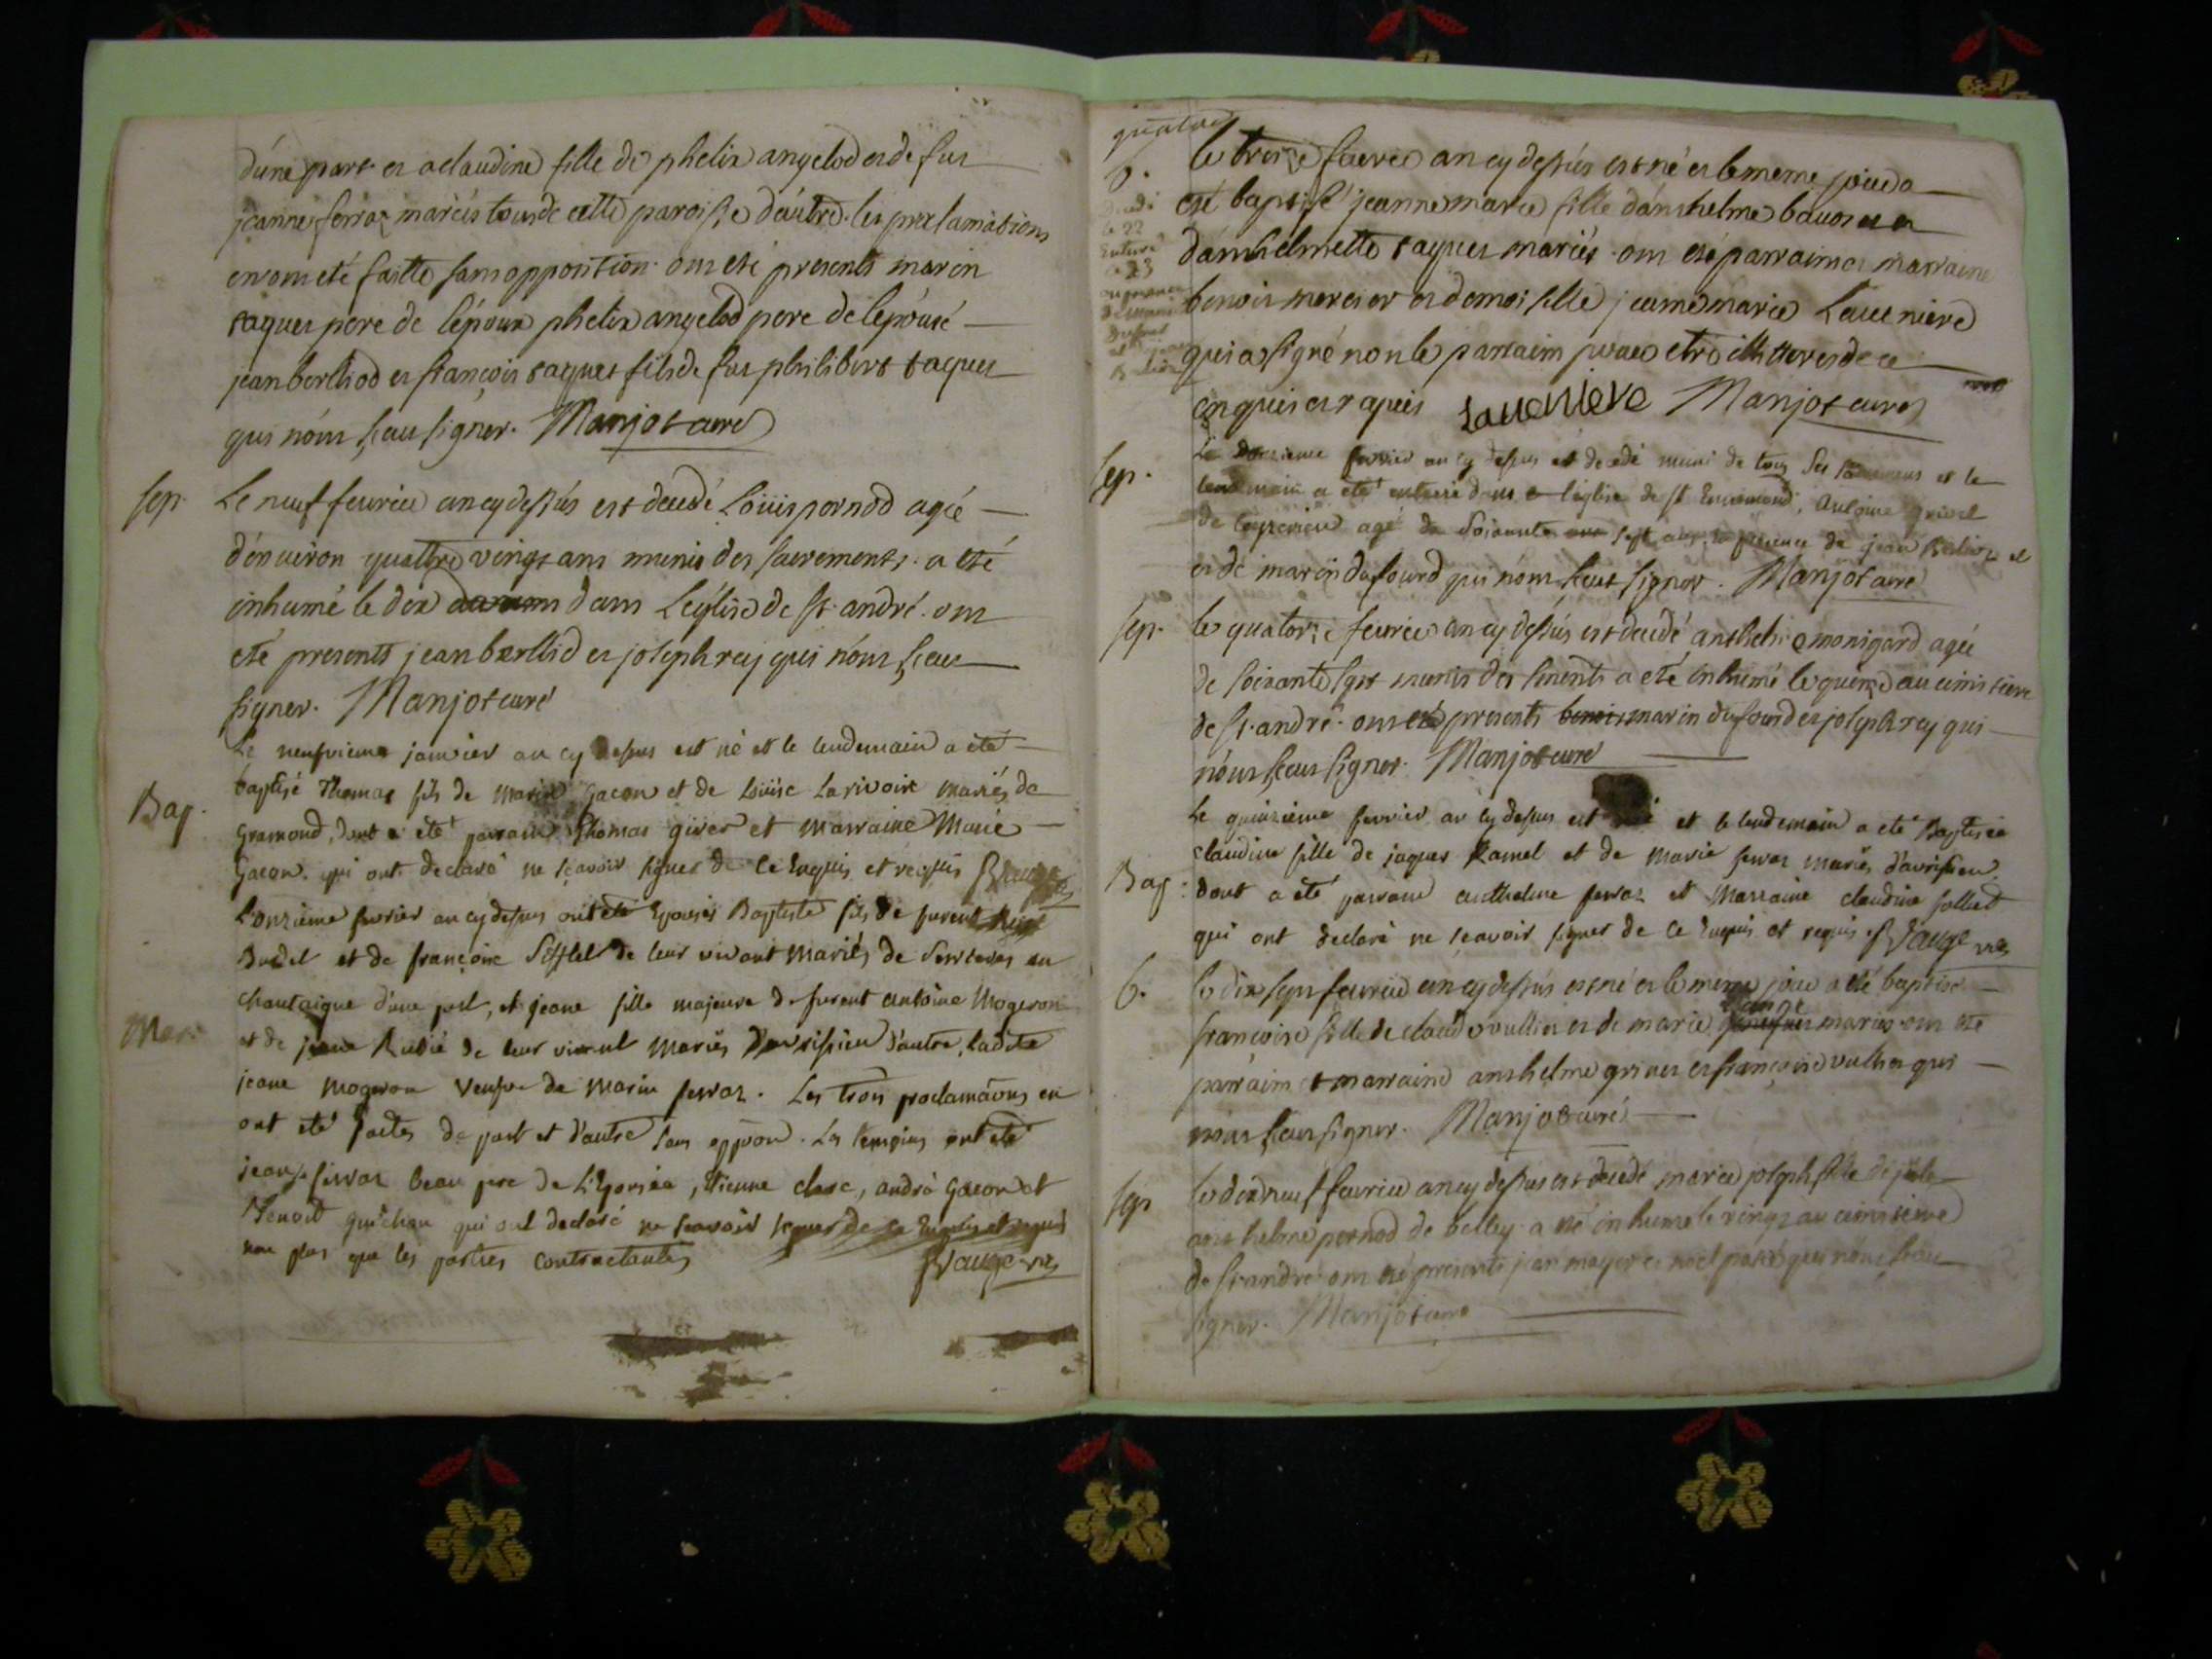 d'une part et a claudine fille de phelix angelod et de fue
jeanne ferraz mariés tous de cette paroisse d'autre. les proclamations
en ont eté faitte sans opposition. ont eté presents marin
taques pere de l'époux phelix angelod pere de l'epouse
jean berthod et françois taques fils de fut philibert taques
qui n'ont sceu signer. Manjot curé
sep.
Le neuf feuvrier an cy dessus est decedé Louis pornod agée
d'enuiron quattre vingt ans munis des sacrements. a eté
inhumé le dix dans L'eglise de st. andré. ont
eté presents jean berthod et joseph rey qui n'ont sceu
signer. Manjot curé
Bap.
Le neufvieme janvier an cy dessus est né et le lendemain a eté
baptisé Thomas fils de Marin Gacon et de Loüise Larivoire mariés de
Gramond, dont a eté parrain Thomas giver et marraine Marie
Gacon. qui ont declaré ne sçavoir signer de ce enquis et requis
Mar.
L'onzieme fevrier an cy dessus ont eté Epousés Baptiste fils de furent
et de françoise de leur vivant mariés de en
chautaigne d'une part, et jeane fille majeure de furent antoine Mogeron
et de jeane de leur vivant mariés d'autre, ladite
jeane mogeron veufve de Marin ferraz. Les trois proclamaōns en
ont eté faites de part et d'autre sans oppōon. Les temoins ont eté
jean ferraz beau pere de L'Epousée, Etienne clerc, andré Gacon et
Benoit guichon qui ont declaré ne scavoir signer de ce enquis et requis
non plus que les parties contractantes
quatre
b.
le treize feuvrier an cy dessus est né et le meme jour a
eté baptisé jeanne marie fille d'anthelme et
d'anthelmette taques mariés. ont eté parrain et marraine
benoit mercier et demoiselle jeanne marie Laueniere
qui a signé non le parrain pour etre illitteré de ce
enquis et requis Laueniere Manjot curé
Sep.
Le fevrier an cy dessus est decedé muni de tous ses sacremens et le
lendemain a eté enterré dans l'eglise de st , Antoine
de agé de soixante sept ans en presence de jean et
et de marin dufourd qui n'ont sceut signer. Manjot curé
sep.
le quatorze feuvrier an cy dessus est decedé anthelme monigard agée
de soixante sept munis des sments a eté inhumé le quinze au cimetiere
de st. andré. ont eté presents marin dufourd et joseph rey qui
n'ont sceut signer. Manjot curé
Bap:
Le quinzieme fevrier an cy dessus est née et le lendemain a eté Baptisée
claudine fille de jaques Ramel et de Marie ferraz mariés
dont a eté parrain anthelme ferraz et Marraine claudine
qui ont declaré ne scavoir signer de ce enquis et requis
b.
le dix sept feuvrier an cy dessus est né et le meme jour a eté baptisé
françoise fille de claude vullier et de marie mariés. ont eté
parrain et marraine anthelme et françoise vullier qui
n'ont sceu signer. Manjot curé
sep
le dix neuf feuvrier an cy dessus est decedé marie joseph fille de
anthelme pernod de belley. a eté inhumé le vingt au cimetiere
de st andré ont eté presents jean mayer et noel qui n'ont sceu
signer. Manjot curé